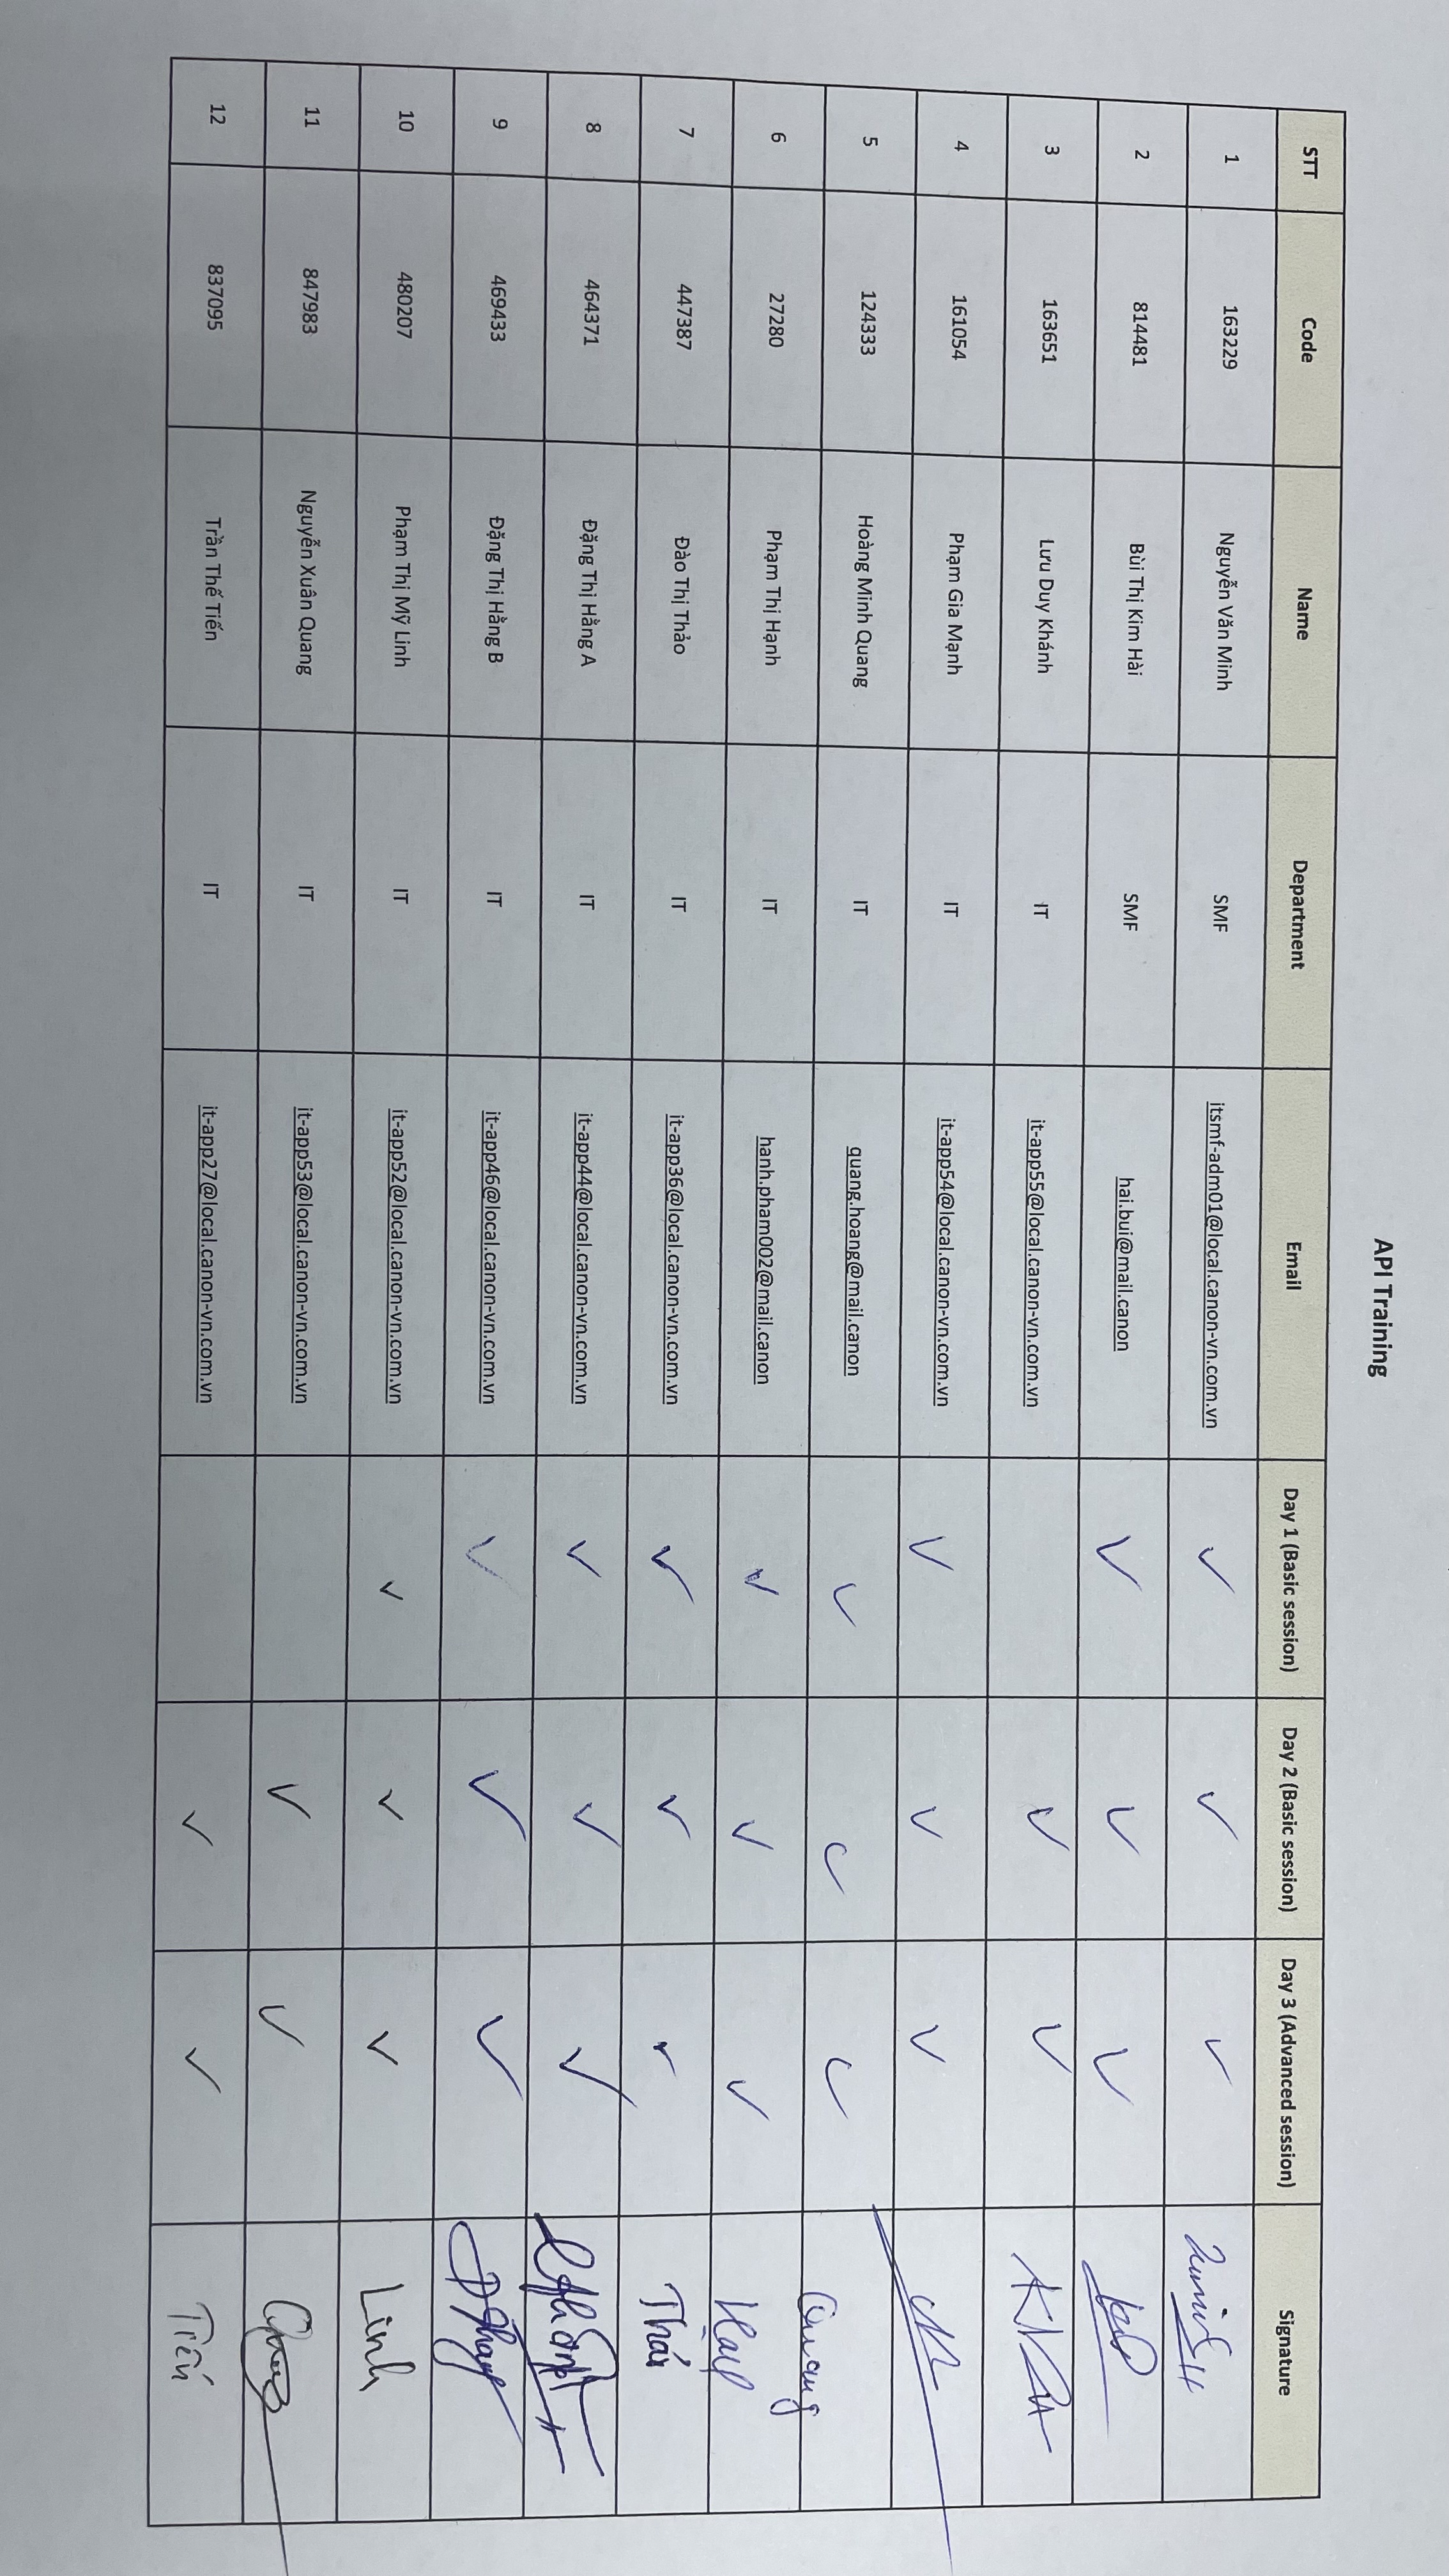 API Training
STT Code Name Department Email Day 1 (Basic session) Day 2 (Basic session) Day 3 (Advanced session) Signature
1 163229 Nguyễn Văn Minh SMF itsmf-adm01@local.canon-vn.com.vn ✓ ✓ ✓
2 814481 Bùi Thị Kim Hài SMF hai.bui@mail.canon ✓ ✓ ✓
3 163651 Lưu Duy Khánh IT it-app55@local.canon-vn.com.vn ✓ ✓
4 161054 Phạm Gia Mạnh IT it-app54@local.canon-vn.com.vn ✓ ✓ ✓
5 124333 Hoàng Minh Quang IT quang.hoang@mail.canon ✓ ✓ ✓ Quang
6 27280 Phạm Thị Hạnh IT hanh.pham002@mail.canon ✓ ✓ ✓
7 447387 Đào Thị Thảo IT it-app36@local.canon-vn.com.vn ✓ ✓ ✓ Thảo
8 464371 Đặng Thị Hằng A IT it-app44@local.canon-vn.com.vn ✓ ✓ ✓
9 469433 Đặng Thị Hằng B IT it-app46@local.canon-vn.com.vn ✓ ✓ ✓
10 480207 Phạm Thị Mỹ Linh IT it-app52@local.canon-vn.com.vn ✓ ✓ ✓ Linh
11 847983 Nguyễn Xuân Quang IT it-app53@local.canon-vn.com.vn ✓ ✓
12 837095 Trần Thế Tiến IT it-app27@local.canon-vn.com.vn ✓ ✓ Tiến